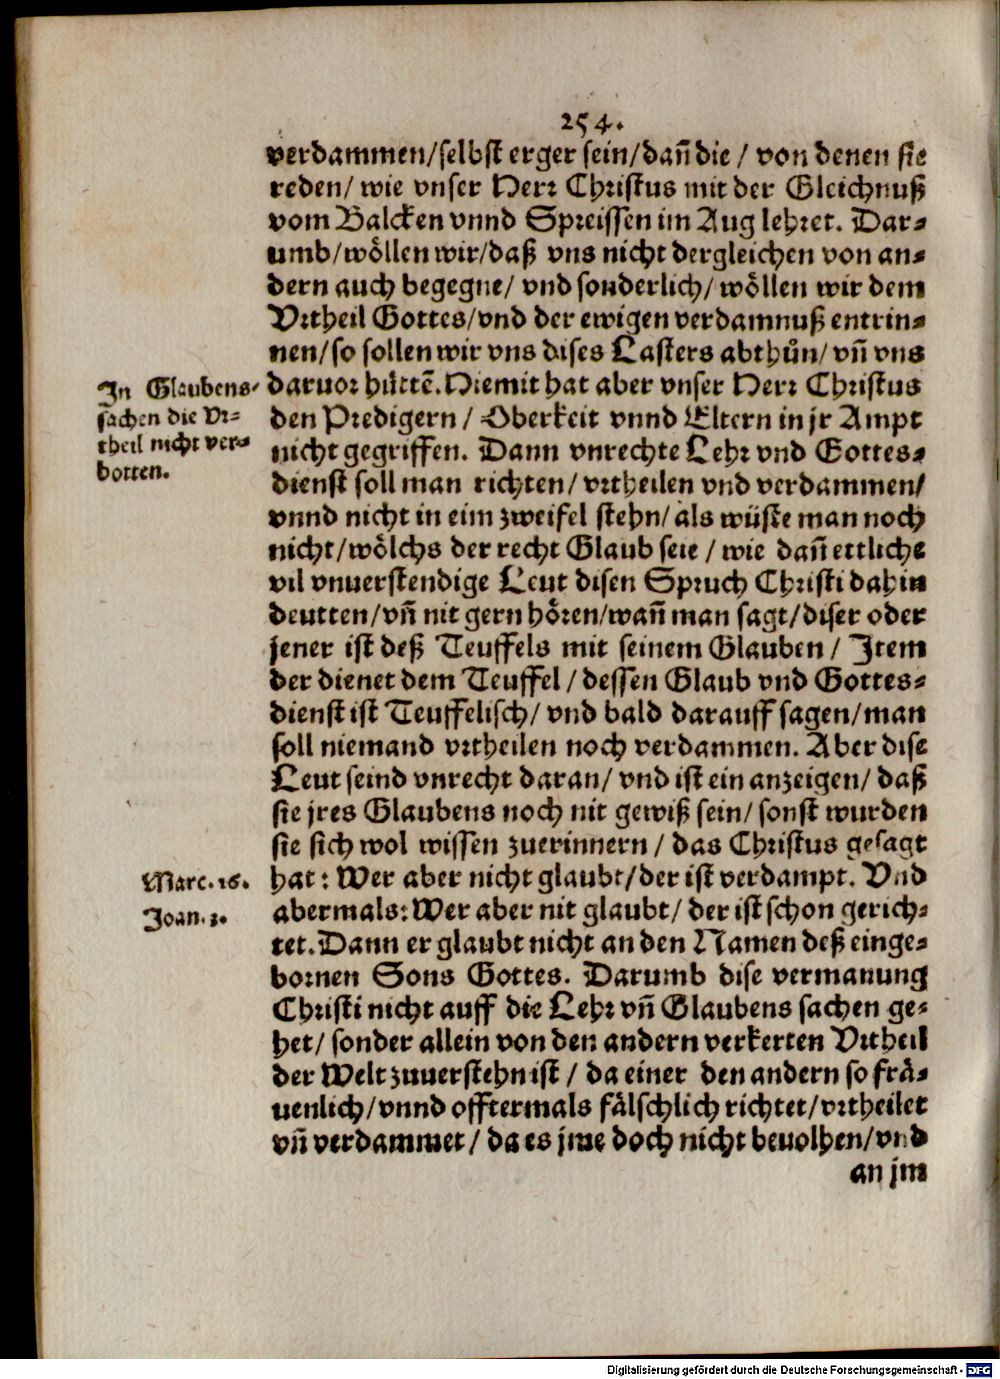 254.
verdammen/selbst erger sein/dañ die / von denen sie
reden/ wie vnser Herr Christus mit der Gleichnuß
vom Balcken vnnd Spreissen im Aug lehret. Dar-
umb/wöllen wir/daß vns nicht dergleichen von an-
dern auch begegne/ vnd sonderlich/ wöllen wir dem
Vrtheil Gottes/vnd der ewigen verdamnuß entrin-
nen/so sollen wir vns dises Lasters abthůn/ vñ vns
daruor hüttẽ. Hiemit hat aber vnser Herr Christus
den Predigern / Oberkeit vnnd Eltern in jr Ampt
nicht gegriffen. Dann vnrechte Lehr vnd Gottes-
dienst soll man richten/ vrtheilen vnd verdammen/
vnnd nicht in eim zweifel stehn/ als wüste man noch
nicht/wölchs der recht Glaub seie / wie dañ ettliche
vil vnuerstendige Leut disen Spruch Christi dahin
deutten/vñ nit gern hören/wañ man sagt/diser oder
jener ist deß Teuffels mit seinem Glauben / Item
der dienet dem Teuffel / dessen Glaub vnd Gottes-
dienst ist Teuffelisch/ vnd bald darauff sagen/man
soll niemand vrtheilen noch verdammen. Aber dise
Leut seind vnrecht daran/ vnd ist ein anzeigen/ daß
sie jres Glaubens noch nit gewiß sein/ sonst wurden
sie sich wol wissen zuerinnern / das Christus gesagt
hat: Wer aber nicht glaubt/der ist verdampt. Vnd
abermals: Wer aber nit glaubt/ der ist schon gerich-
tet. Dann er glaubt nicht an den Namen deß einge-
bornen Sons Gottes. Darumb dise vermanung
Christi nicht auff die Lehr vñ Glaubens sachen ge-
het/ sonder allein von den andern verkerten Vrtheil
der Welt zuuerstehn ist / da einer den andern so frä-
uenlich/vnnd offtermals fälschlich richtet/vrtheilet
vñ verdammet / da es jme doch nicht beuolhen/vnd
an jm
In Glaubens-
sachen die Vr-
theil nicht ver-
botten.
Marc. 16.
Joan. 3.
Digitalisierung gefördert durch die Deutsche Forschungsgemeinschaft - DFG